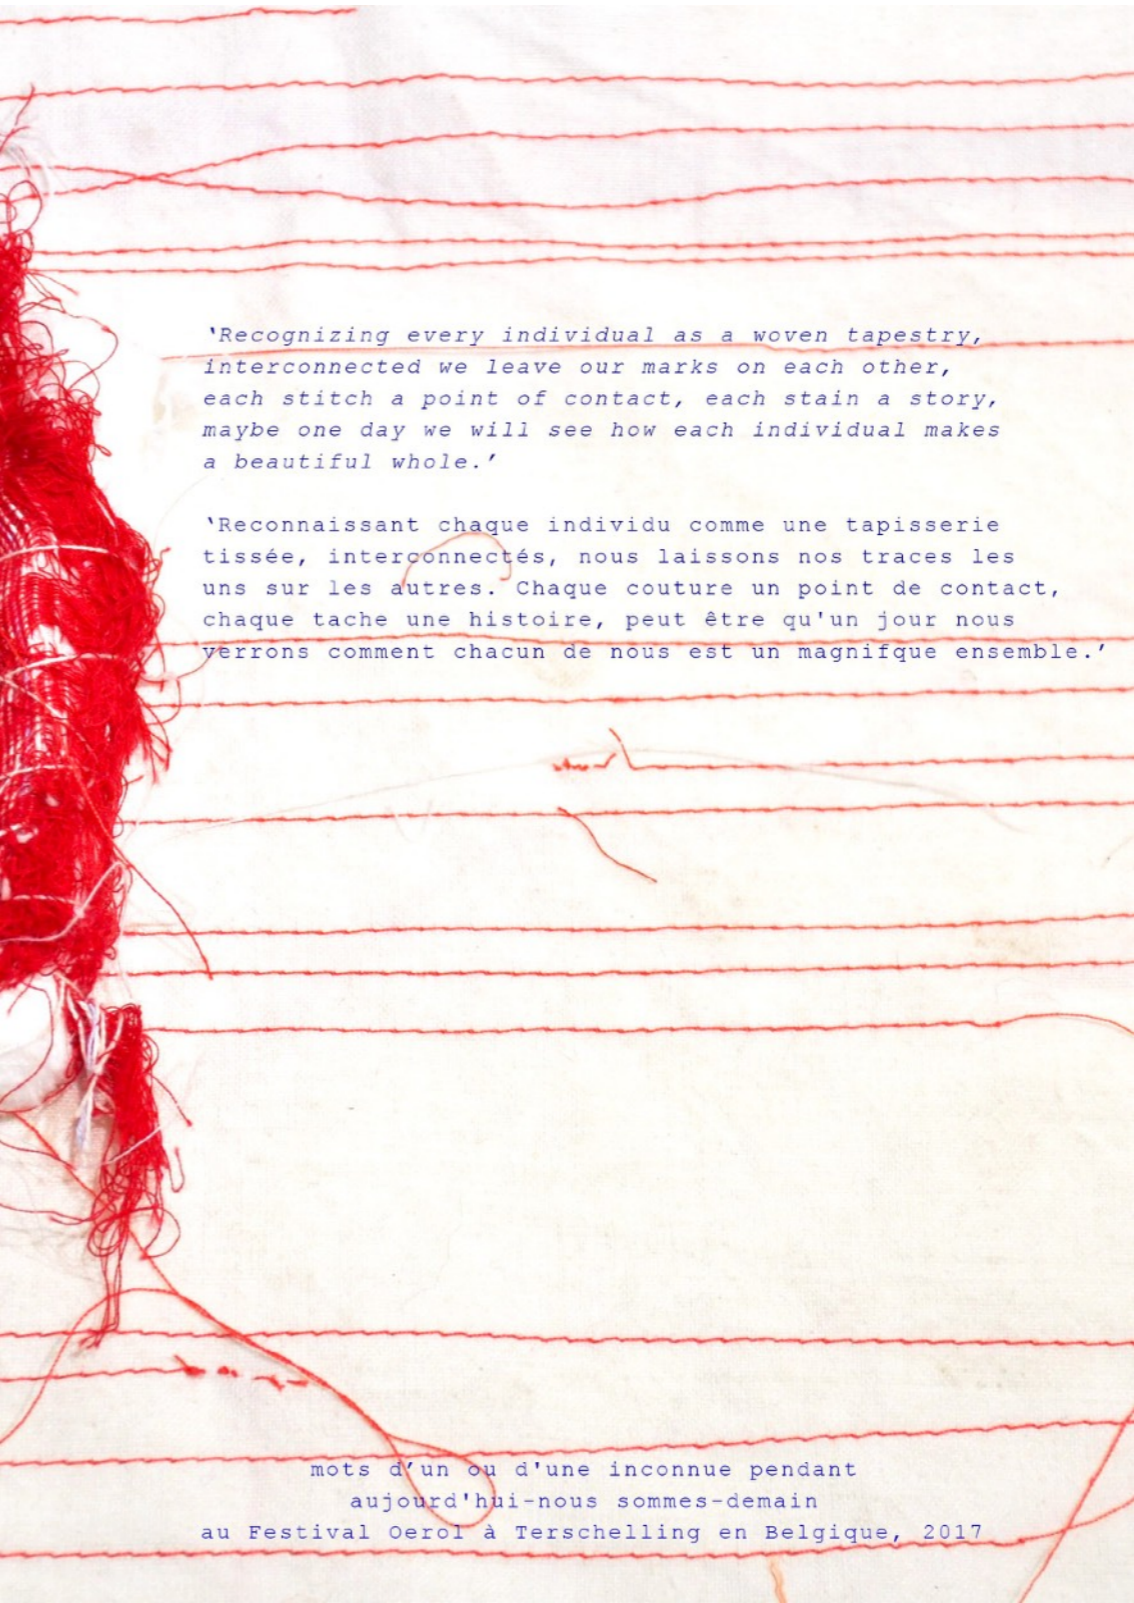 ‘Recognizing every individual as a woven tapestry,
interconnected we leave our marks on each other,
each stitch a point of contact, each stain a story,
maybe one day we will see how each individual makes
a beautiful whole.’
‘Reconnaissant chaque individu comme une tapisserie
tissée, interconnectés, nous laissons nos traces les
uns sur les autres. Chaque couture un point de contact,
chaque tache une histoire, peut être qu'un jour nous
verrons comment chacun de nous est un magnifque ensemble.’
mots d’un ou d'une inconnue pendant
aujourd'hui-nous sommes-demain
au Festival Oerol à Terschelling en Belgique, 2017